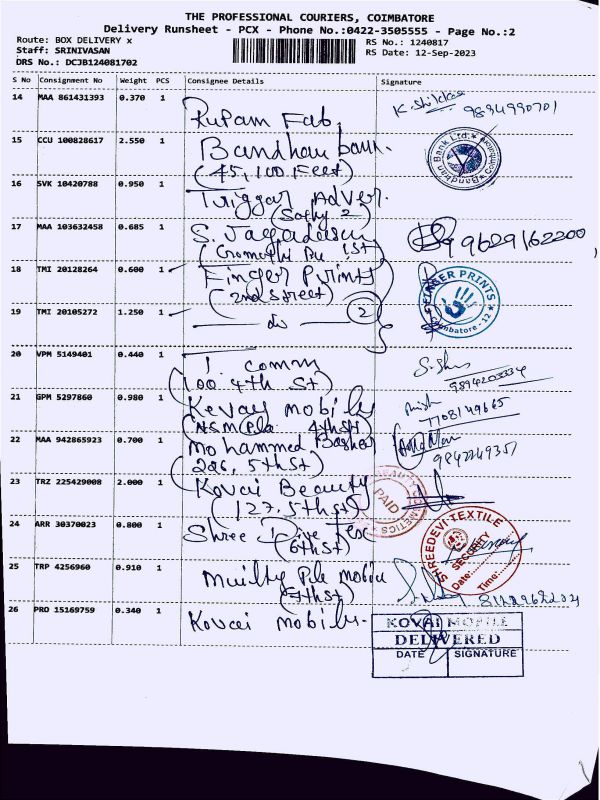 THE PROFESSIONAL COURIERS, COIMBATORE
Delivery Runsheet - PCX - Phone No.:0422-3505555 - Page No.:2
Route: BOX DELIVERY x
RS No.: 1240817
Staff: SRINIVASAN
RS Date: 12-Sep-2023
DRS No.: DCJB124081702
S No Consignment No Weight PCS Consignee Details Signature
14 MAA 861431393 0.370 1 Rupam Fab. 9894990701
15 CCU 100828617 2.550 1 Bandhan bank.
(45, 100 Feet)
Bandhan Bank Ltd. ★ Coimbatore
16 SVK 10420788 0.950 1 Triggar Adver.
17 MAA 103632458 0.685 1 S. Jagadeesan 9629162200,
(1st)
18 TMI 20128264 0.600 1 Finger Prints
(2nd Street)
FINGER PRINTS
Coimbatore - 12
19 TMI 20105272 1.250 1 — do — 2
20 VPM 5149401 0.440 1 1. comm
(100. 4th St)
9894203334
21 GPM 5297860 0.980 1 Kovai mobile
4th St)
7708149665
22 MAA 942865923 0.700 1 Mohammed Basha
(286, 5th St)
9842249351
23 TRZ 225429008 2.000 1 Kovai Beauty
(127. 5th St)
BEAUTY COSMETICS
PAID
24 ARR 30370023 0.800 1 Shree Tex
(6th St)
SHREEDEVI TEXTILE
SECURITY
Date:
Time:
25 TRP 4256960 0.910 1 Mobile
(7th St)
26 PRO 15169759 0.340 1 Kovai mobile.
KOVAI MOBILE
DELIVERED
DATE SIGNATURE